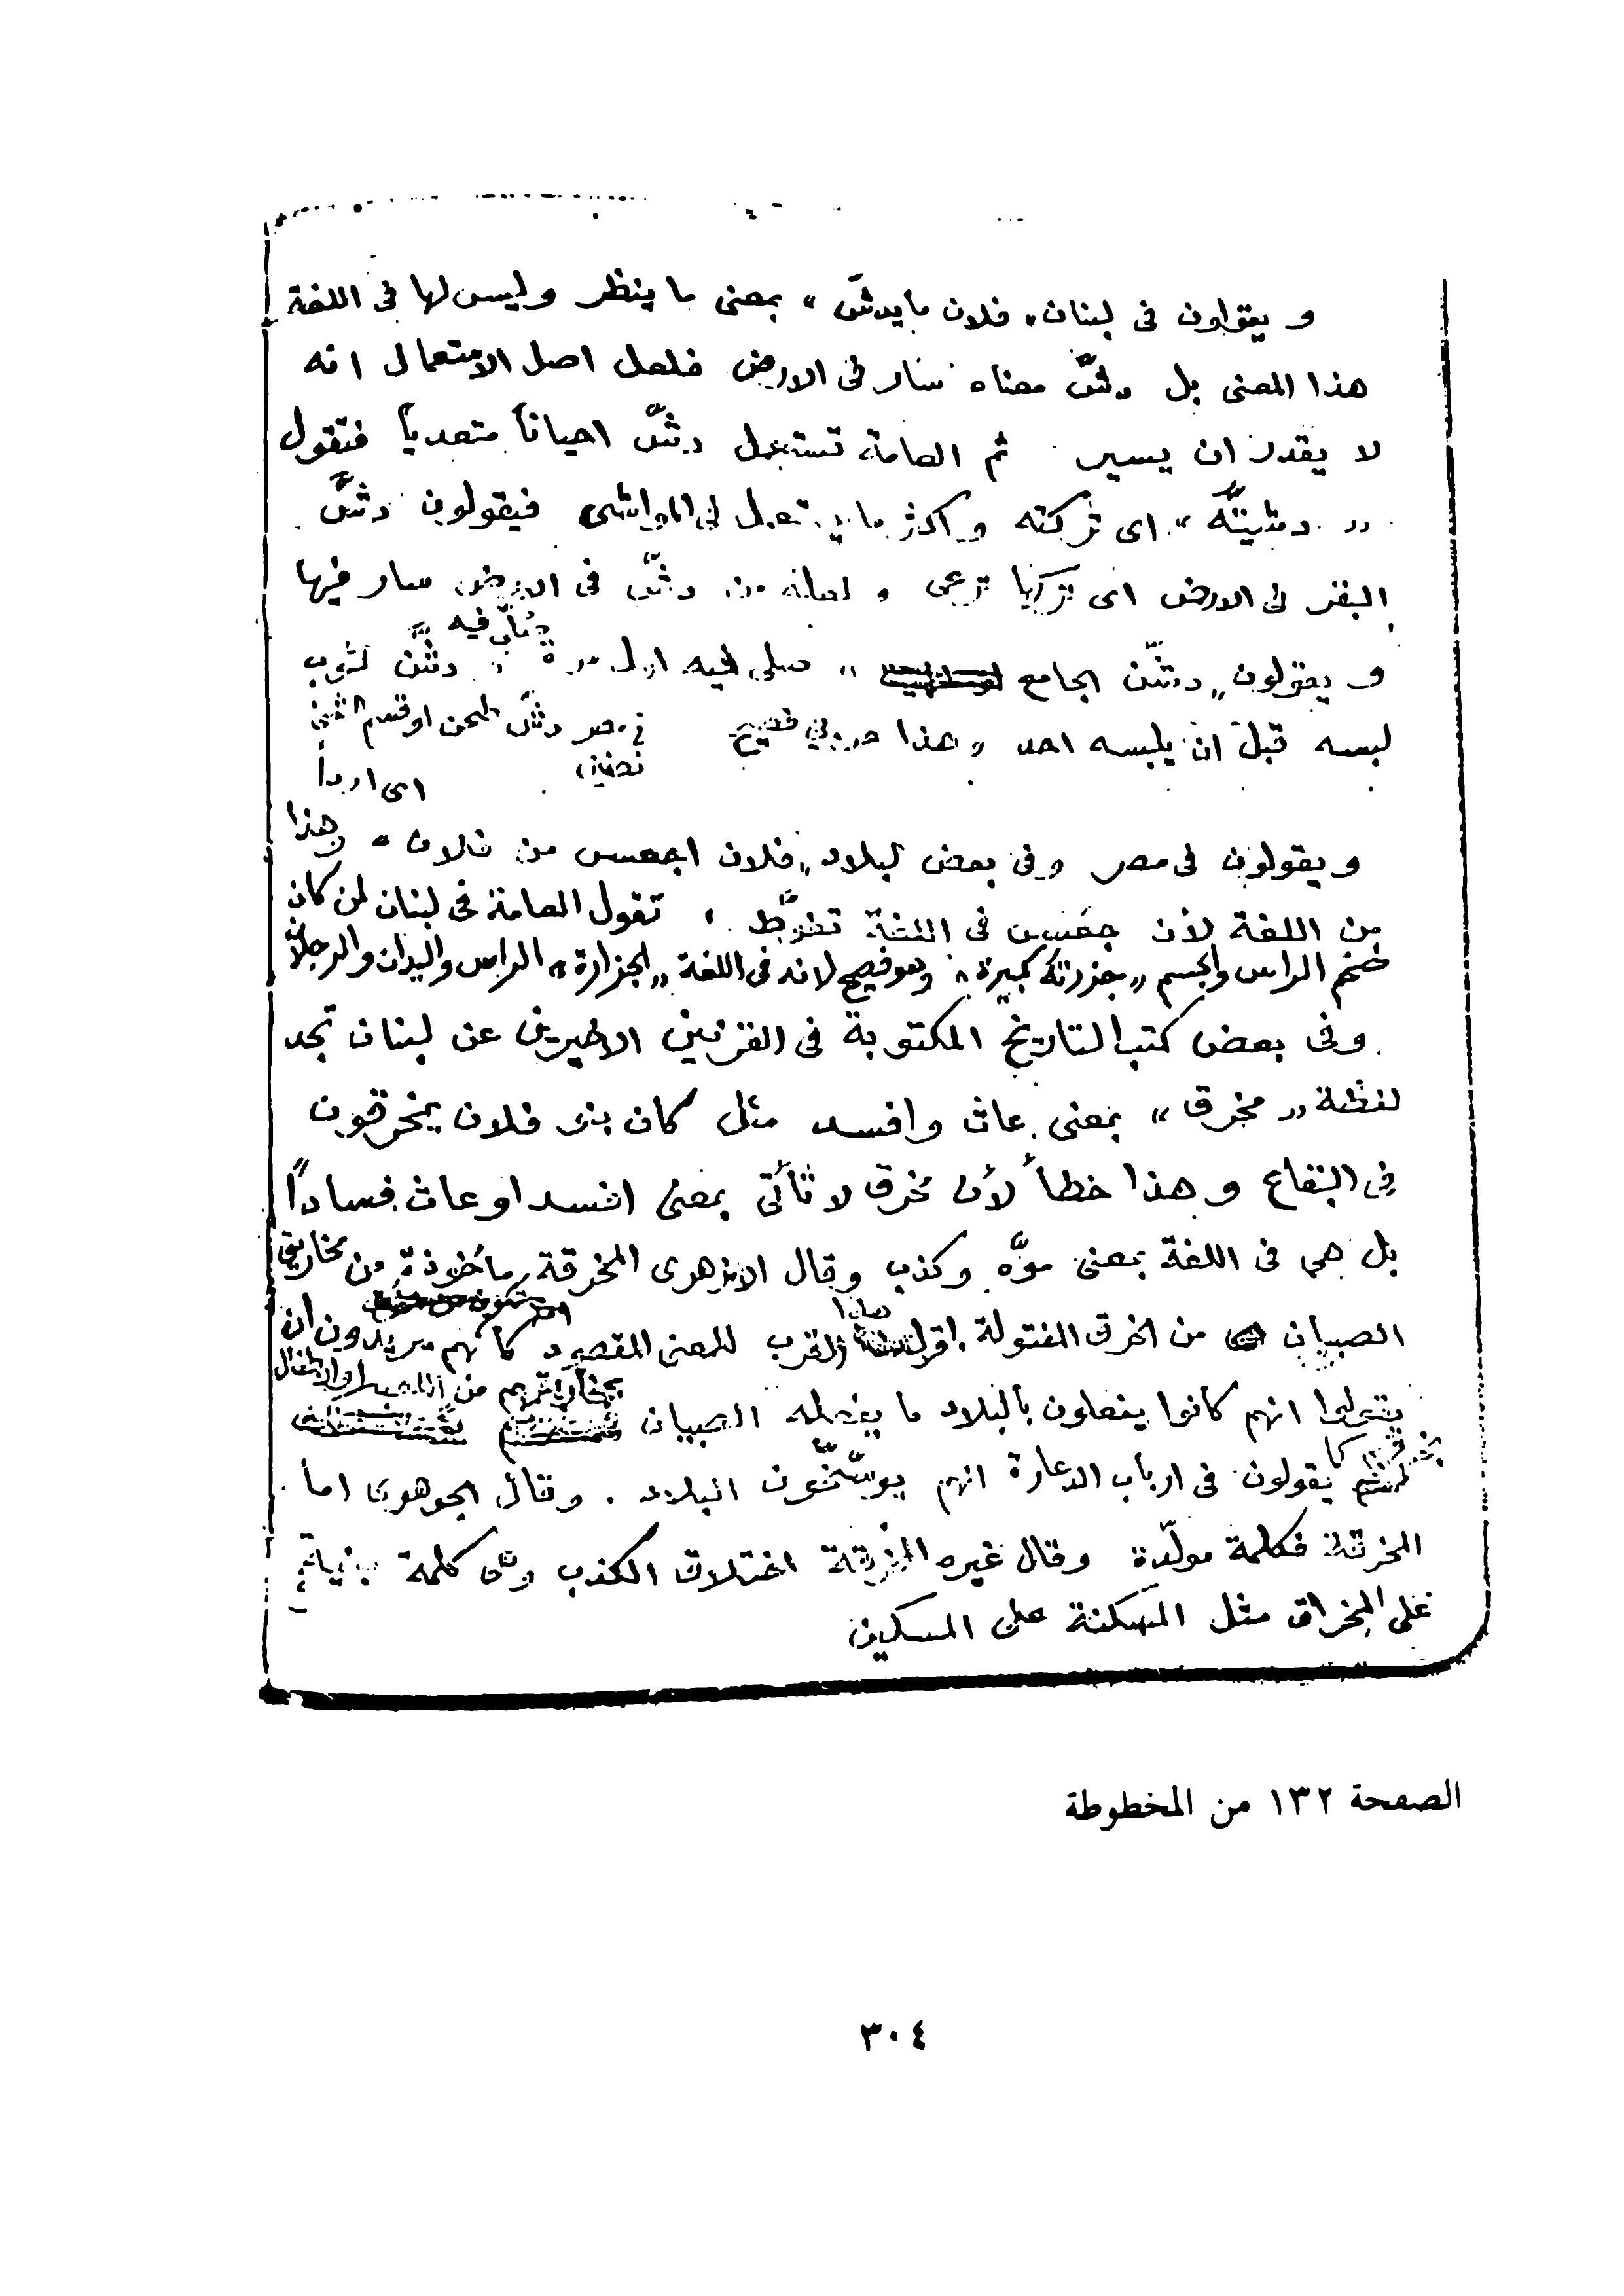 و يقولون فى لبنان «فلان ما يدشّ» بمعنى ما ينظر وليس لها فى اللغة
هذا المعنى بل دشّ معناه سار فى الارض فلعل اصل الاستعمال انه
لا يقدر ان يسير ثم العامة تستعمل دشّ احياناً متعدياً فتقول
« دشيتّه » اى تركته واكثر ما يستعمل فى المواشى فيقولون دشّ
البقر فى الارض اى تركها ترعى و اصله من دشّ فى الارض سار فيها
و يقولون «دشّن الجامع» صلى فيه اول مرة
صُلّى فيه
دشّن الثوب
لبسه قبل ان يلبسه احد وهذا عربي فصيح
فى مصر دشّ طحن او قسم الشئ
نصفين
اى اربا
ويقولون فى مصر وفى بعض البلاد «فلان اجعس من فلان» وهذا
من اللغة لأن جعس فى اللغة تغوّط . تقول العامة فى لبنان لمن كان
ضخم الراس والجسم «جزرته كبيرة» وهو فصيح لانه فى اللغة «الجزارة» الراس واليدان والرجلان
وفى بعض كتب التاريخ المكتوبة فى القرنين الاخيرين عن لبنان تجد
لفظة «مخرق» بمعنى عاث وافسد مثل كان بنو فلان يمخرقون
فى البقاع وهذا خطأ لأن مخرق لا تأتى بمعنى افسد او عاث فساداً
بل هى فى اللغة بمعنى موّه وكذب وقال الازهرى المخرقة مأخوذة من مخاريق
الصبيان من الخرق المفتولة. اقرب للمعنى المقصود كانهم يريدون ان
يقولوا انهم كانوا يفعلون بالبلاد ما يفعله الصبيان
بمخاريقهم من
كما يقولون فى ارباب الدعارة انهم البلاد . وقال الجوهرى اما
المخرقة فكلمة مولّدة وقال غيره المخرقة اختلاق الكذب وهى كلمة مبنية
على المخراق مثل المَسكنة على المسكين
الصفحة ١٣٢ من المخطوطة
٣٠٤